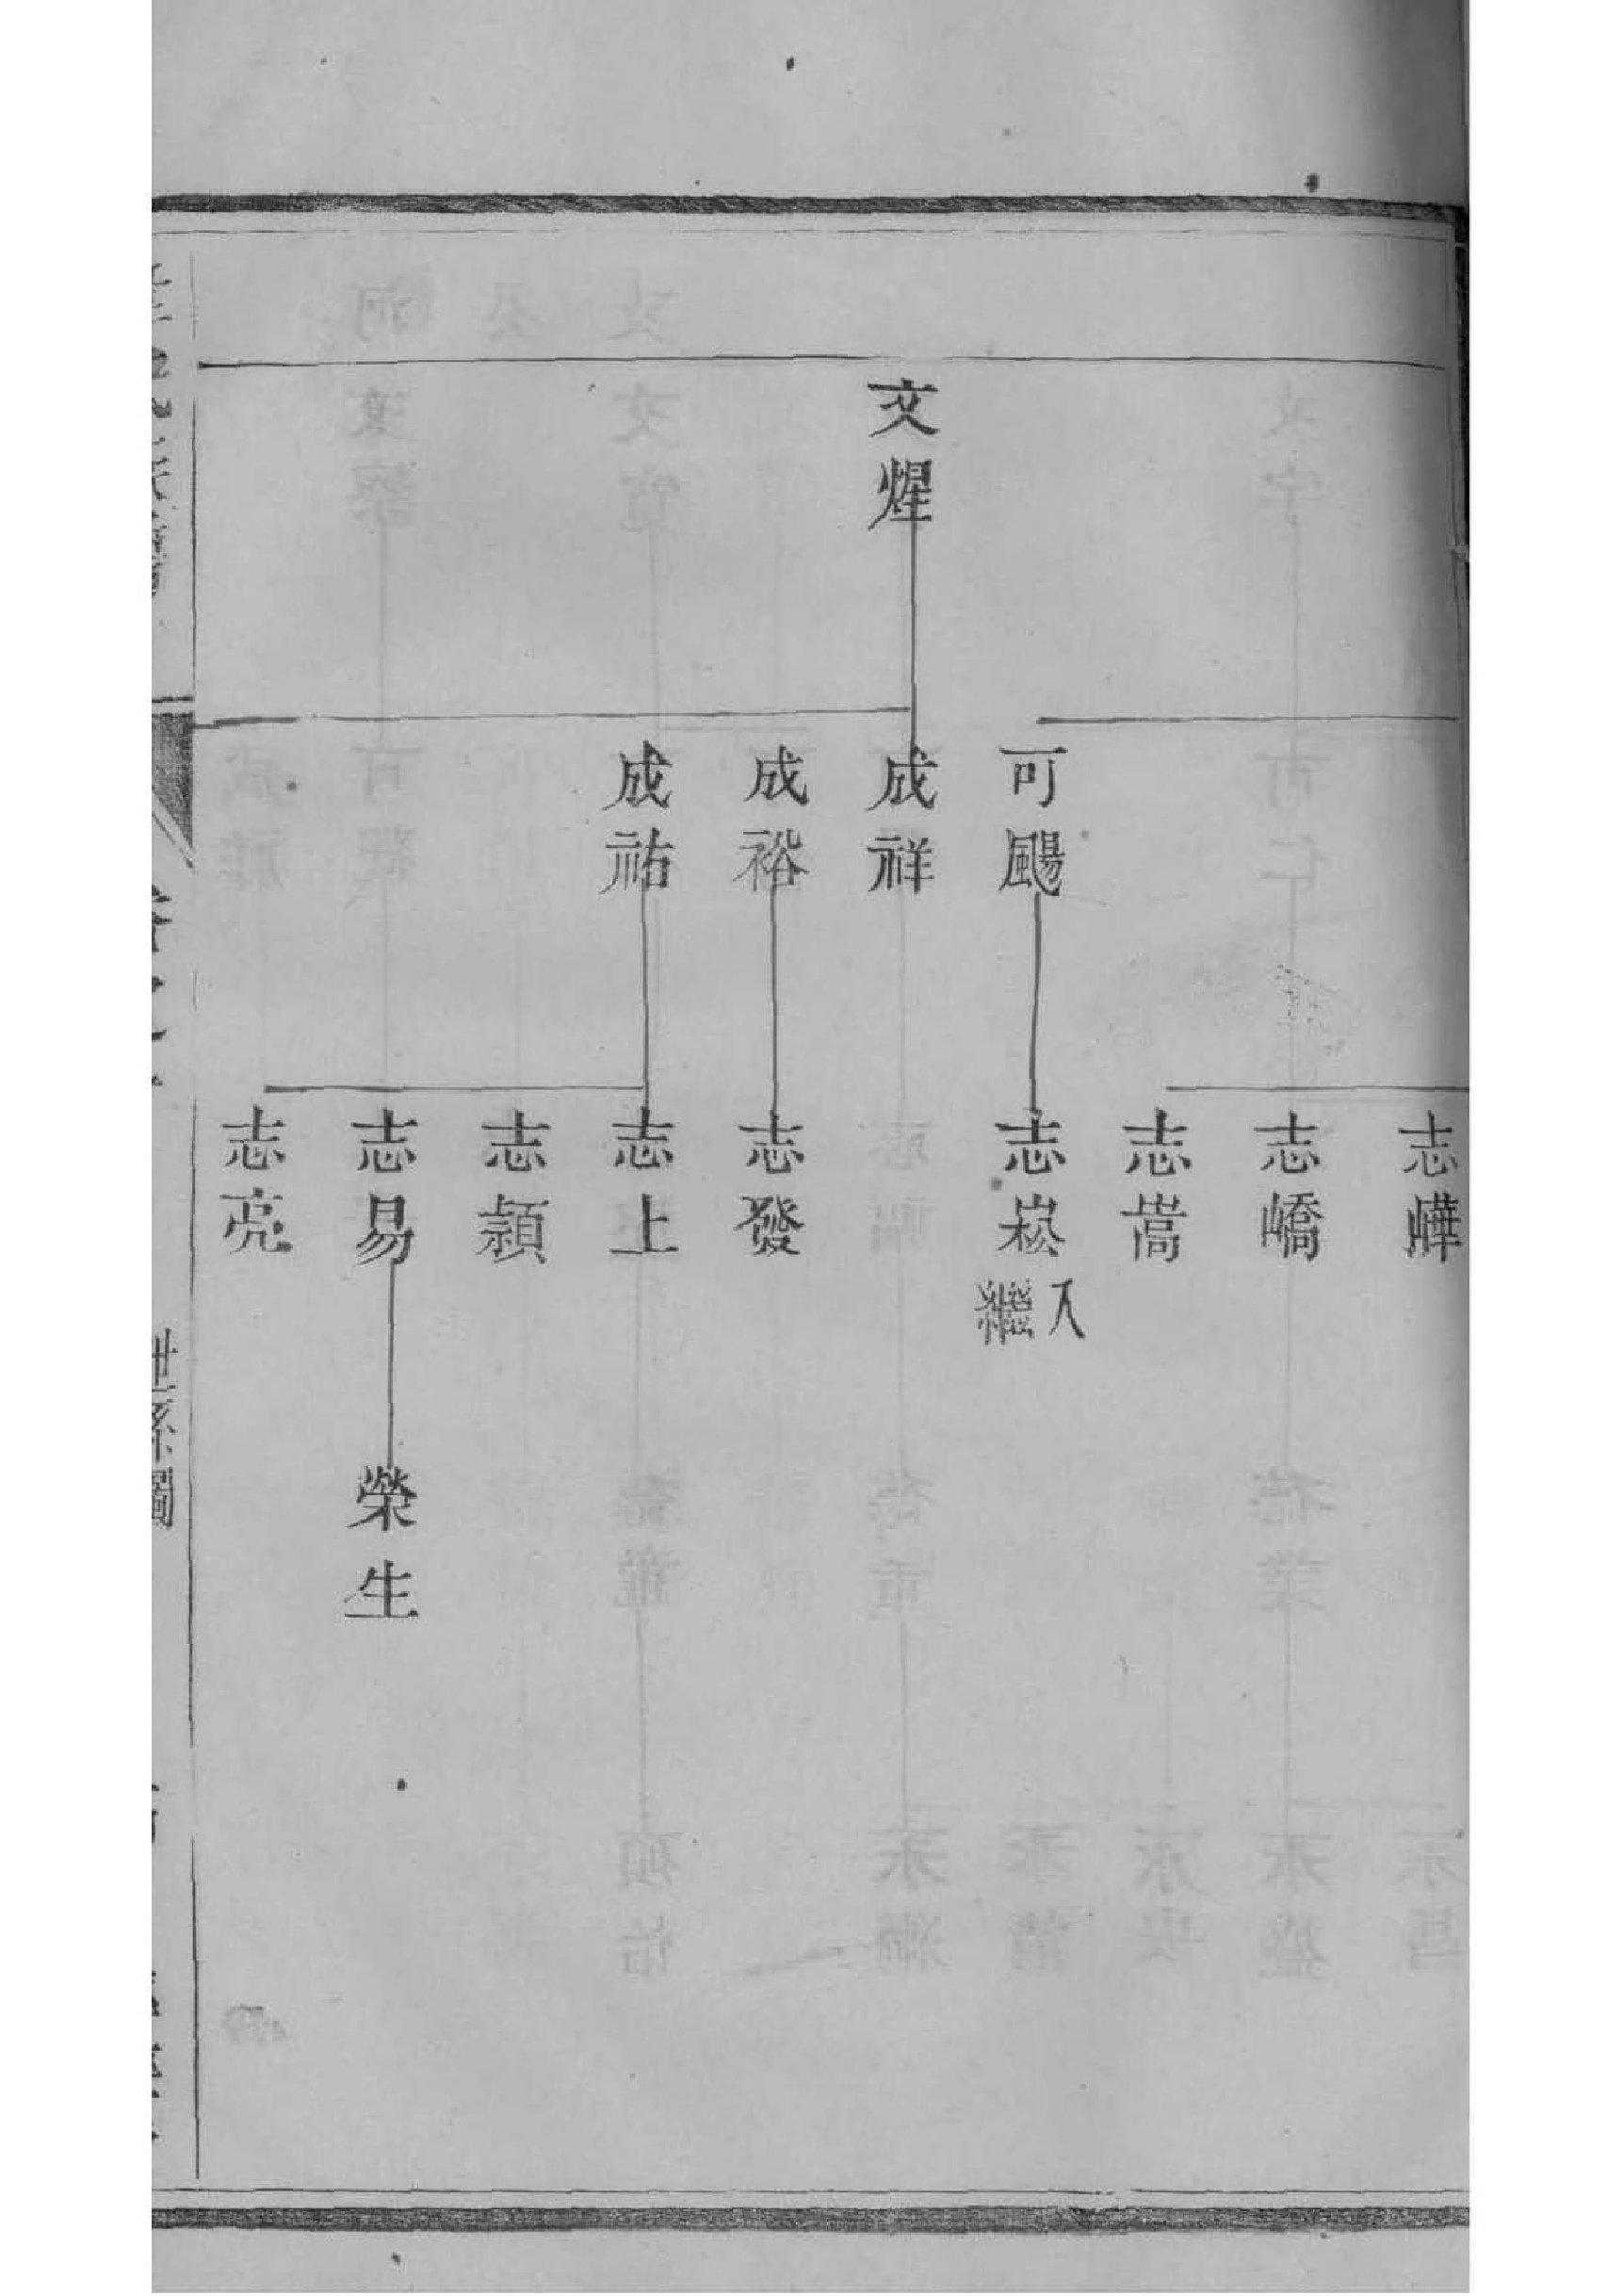 文煋
可颺
成祥
成裕
成祐
志嶂
志嶠
志嵩
志崧
入繼
志發
志上
志穎
志易
志亮
榮生
世系圖